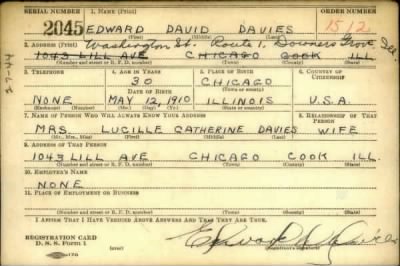 SERIAL NUMBER 1. NAME (Print) ORDER NUMBER
2045 EDWARD DAVID DAVIES 1512
(First) (Middle) (Last)
2. ADDRESS (Print) Washington St. Route 1, Downers Grove, Ill.
1043 LILL AVE CHICAGO COOK ILL
(Number and street or R. F. D. number) (Town) (County) (State)
3. TELEPHONE 4. AGE IN YEARS 5. PLACE OF BIRTH 6. COUNTRY OF CITIZENSHIP
30 CHICAGO
DATE OF BIRTH (Town or county)
NONE MAY 12, 1910 ILLINOIS U.S.A.
(Exchange) (Number) (Mo.) (Day) (Yr.) (State or country)
7. NAME OF PERSON WHO WILL ALWAYS KNOW YOUR ADDRESS 8. RELATIONSHIP OF THAT PERSON
MRS. LUCILLE CATHERINE DAVIES WIFE
(Mr., Mrs., Miss) (First) (Middle) (Last)
9. ADDRESS OF THAT PERSON
1043 LILL AVE CHICAGO COOK ILL.
(Number and street or R. F. D. number) (Town) (County) (State)
10. EMPLOYER'S NAME
NONE
11. PLACE OF EMPLOYMENT OR BUSINESS
(Number and street or R. F. D. number) (Town) (County) (State)
I AFFIRM THAT I HAVE VERIFIED ABOVE ANSWERS AND THAT THEY ARE TRUE.
REGISTRATION CARD
D. S. S. Form 1 (Registrant's signature)
Edward D. Davies
2-7-44